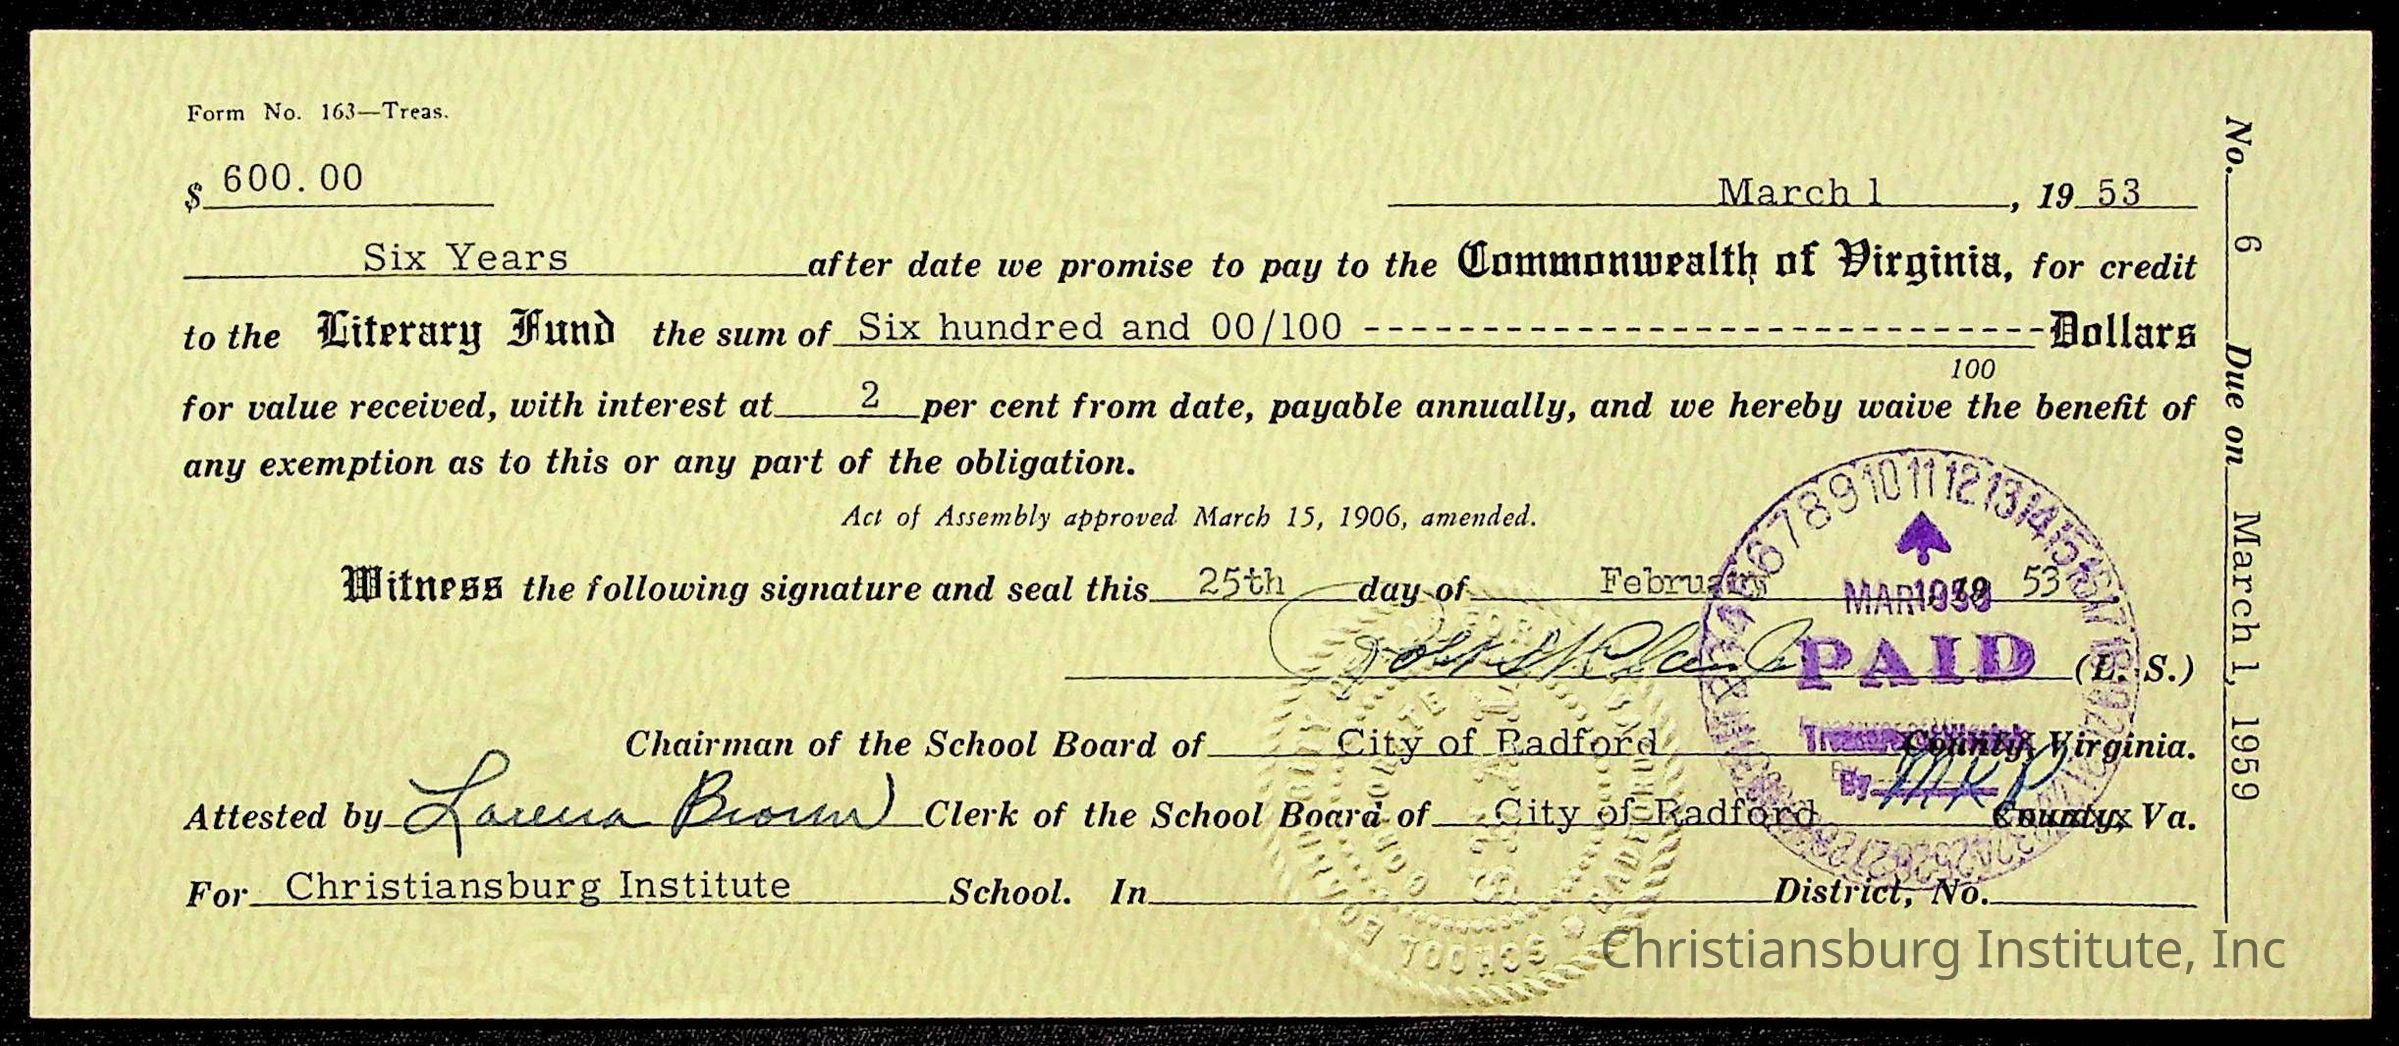 Form No. 163—Treas.
$ 600.00
March 1, 19 53
Six Years after date we promise to pay to the Commonwealth of Virginia, for credit
to the Literary Fund the sum of Six hundred and 00/100 ------------------------------Dollars
100
for value received, with interest at 2 per cent from date, payable annually, and we hereby waive the benefit of
any exemption as to this or any part of the obligation.
Act of Assembly approved March 15, 1906, amended.
Witness the following signature and seal this 25th day of February 19 53.
(L. S.)
Chairman of the School Board of City of Radford County, Virginia.
Attested by Lorena Brown Clerk of the School Board of City of Radford County, Va.
For Christiansburg Institute School. In District, No.
No. 6 Due on March 1, 1959
PAID
By
SCHOOL BOARD
SEAL
Christiansburg Institute, Inc